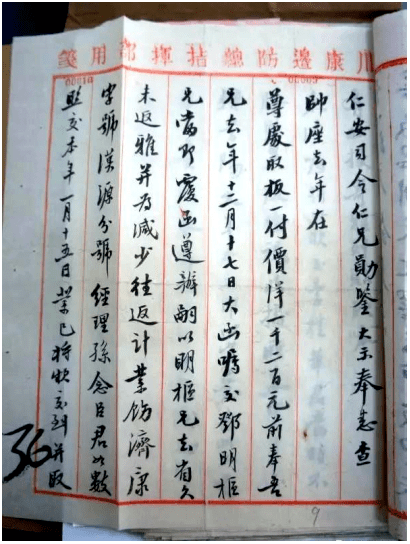 川康邊防總指揮部用箋
仁安司令仁兄勛鑒大示奉悉查
帥座去年在
尊處取板一付價洋一千二百元前奉吾
兄去年十二月十七日大函囑交鄧明樞
兄當即覆函遵辦嗣以明樞兄去省久
未返雅并為減少往返計業飭濟康
字號漢源分號經理孫念臣君如數
照交本年一月十五日業已將款交到并取
36
9